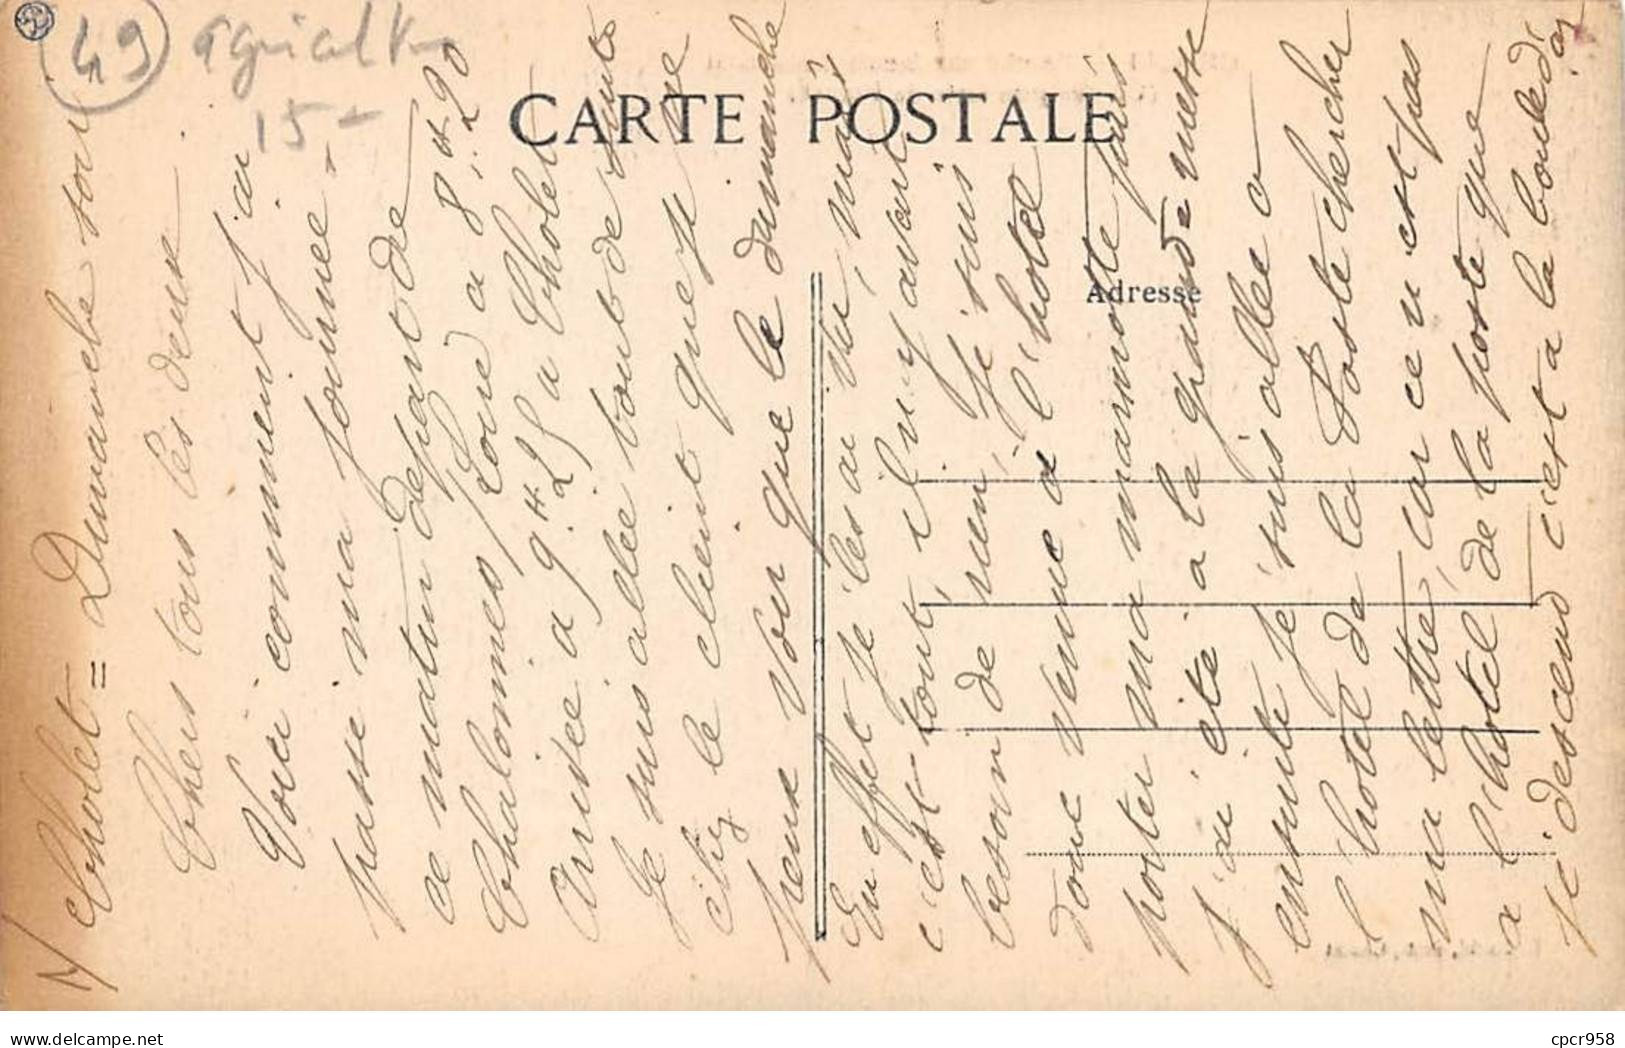 (49) agricult
15-
CARTE POSTALE
Adresse
1/ Cholet = Dimanche soir
Chers tous les deux
Voici comment j'ai
passé ma journée -
ce matin départ de
Chalonnes / Loire a 8H.20
Arrivée a 9H.25 a Cholet
Je suis allée tout de suite
chez le client que je ne
peux voir que le dimanche
En effet je l'es ai vu, mais
c'est tout, il n'y avait
besoin de rien, je suis
donc venue a l'hotel
porter ma marmotte puis
j'ai été a la grande messe
ensuite je suis allée a
l'hotel de la Poste chercher
ma lettre, car ce n'est pas
a l'hotel de la poste que
je descend c'est a la boule d'or
cpcr958